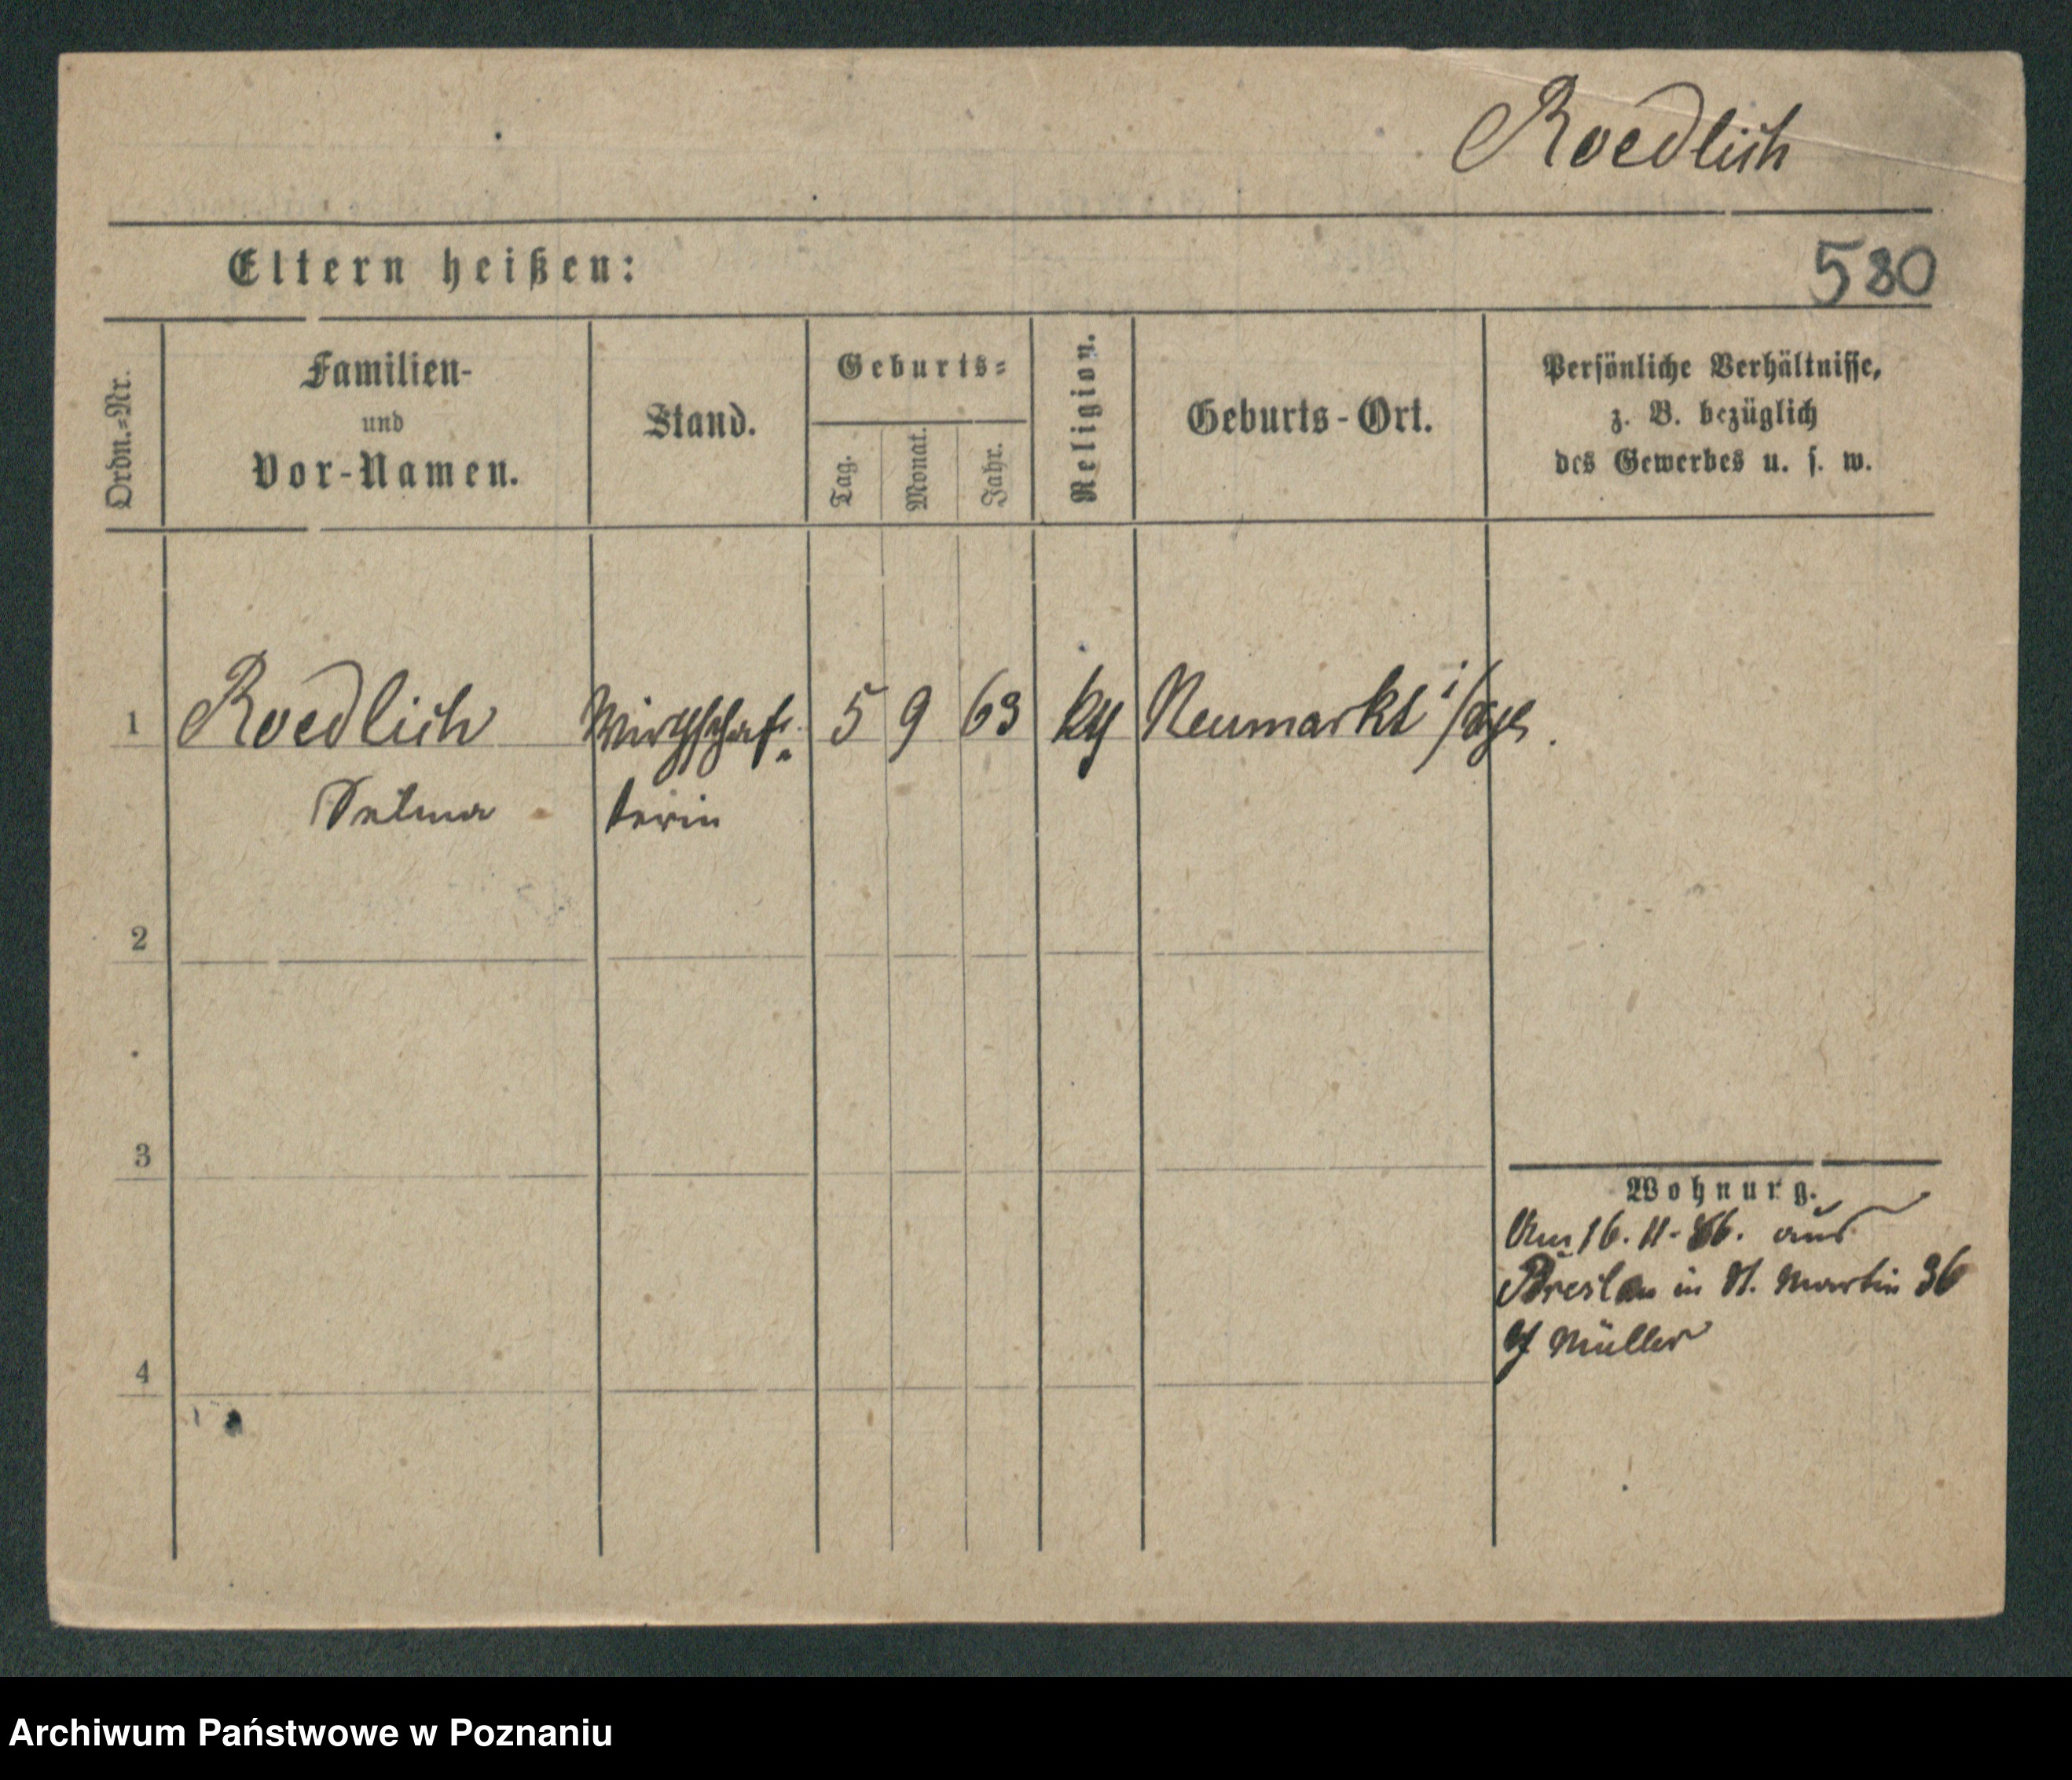 Roedlich
Eltern heißen:
580
Ordn.-Nr.
Familien-
und
Vor-Namen.
Stand.
Geburts-
Tag.
Monat.
Jahr.
Religion.
Geburts-Ort.
Persönliche Verhältnisse,
z. B. bezüglich
des Gewerbes u. s. w.
1 Roedlich Wirthschaf- 5 9 63 Neumarkt i/
Selma terin
2
3
4
Wohnung.
Am 16. 11. 86. aus
Breslau in St. Martin 36
Müller
Archiwum Państwowe w Poznaniu